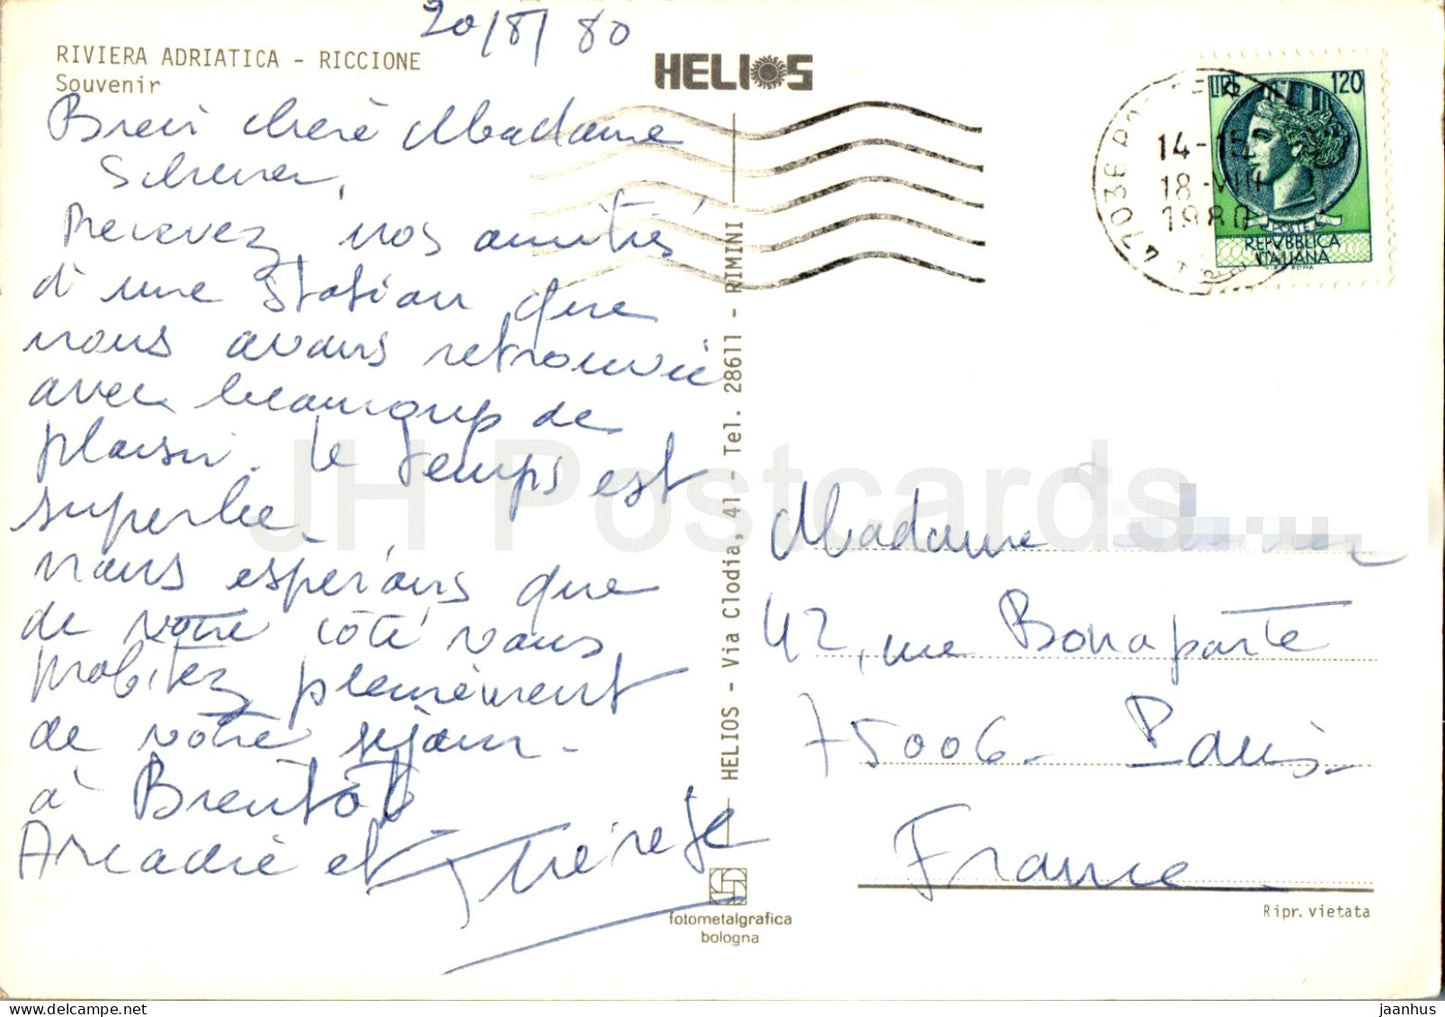 20/8/80
RIVIERA ADRIATICA - RICCIONE
Souvenir
HELIOS
Bien chère Madame
Recevez nos amitiés
d'une station que
nous avons retrouvée
avec beaucoup de
plaisir. Le temps est
superbe.
nous espérons que
de votre côté vous
profitez pleinement
de votre séjour -
à
Arcadie et Thérèse
HELIOS - Via Clodia, 41 - Tel. 28611 - RIMINI
fotometalgrafica
bologna
LIRE 120
POSTE
REPVBBLICA
ITALIANA
14-15
18-VIII
1980
Madame
42, rue Bonaparte
75006 - Paris -
France
Ripr. vietata
JH Postcards
jaanhus